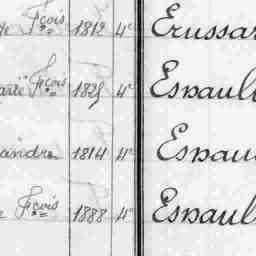 Fçois 1812 4e Erussar
arie Fçois 1825 4e Esnaul
andre 1814 4e Esnau
e Fçois 1888 4e Esnaul